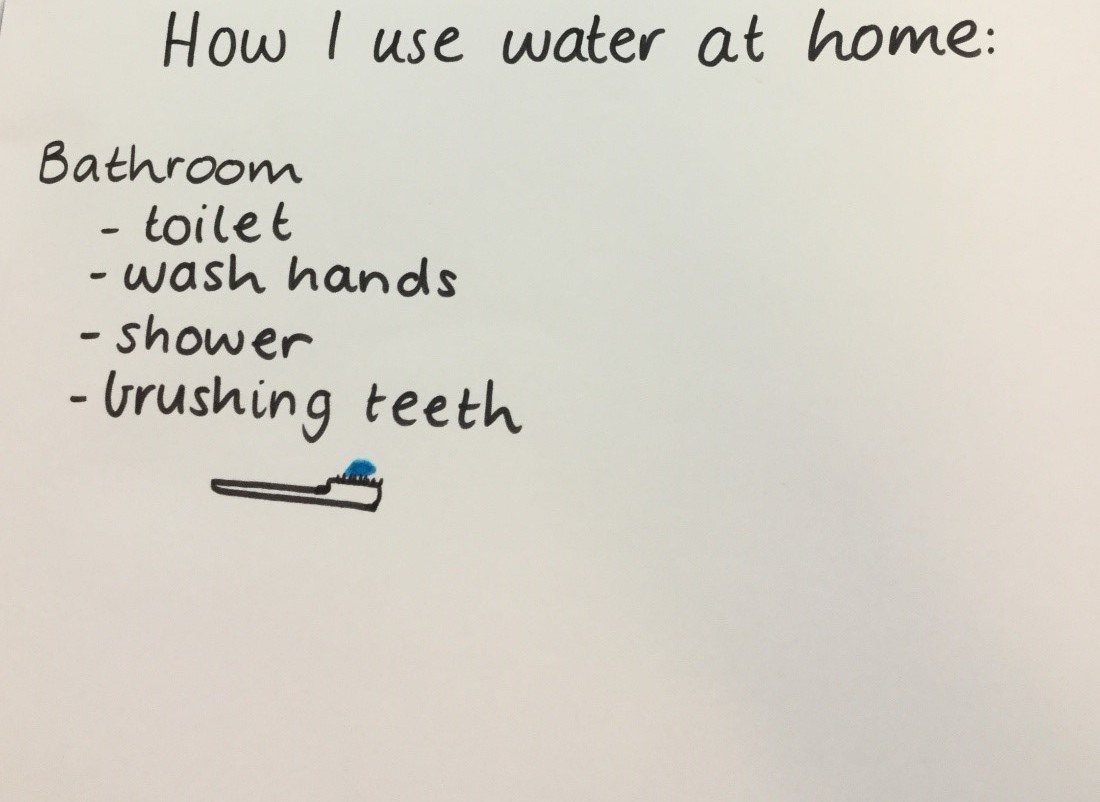 How I use water at home:
Bathroom
- toilet
- wash hands
- shower
- brushing teeth